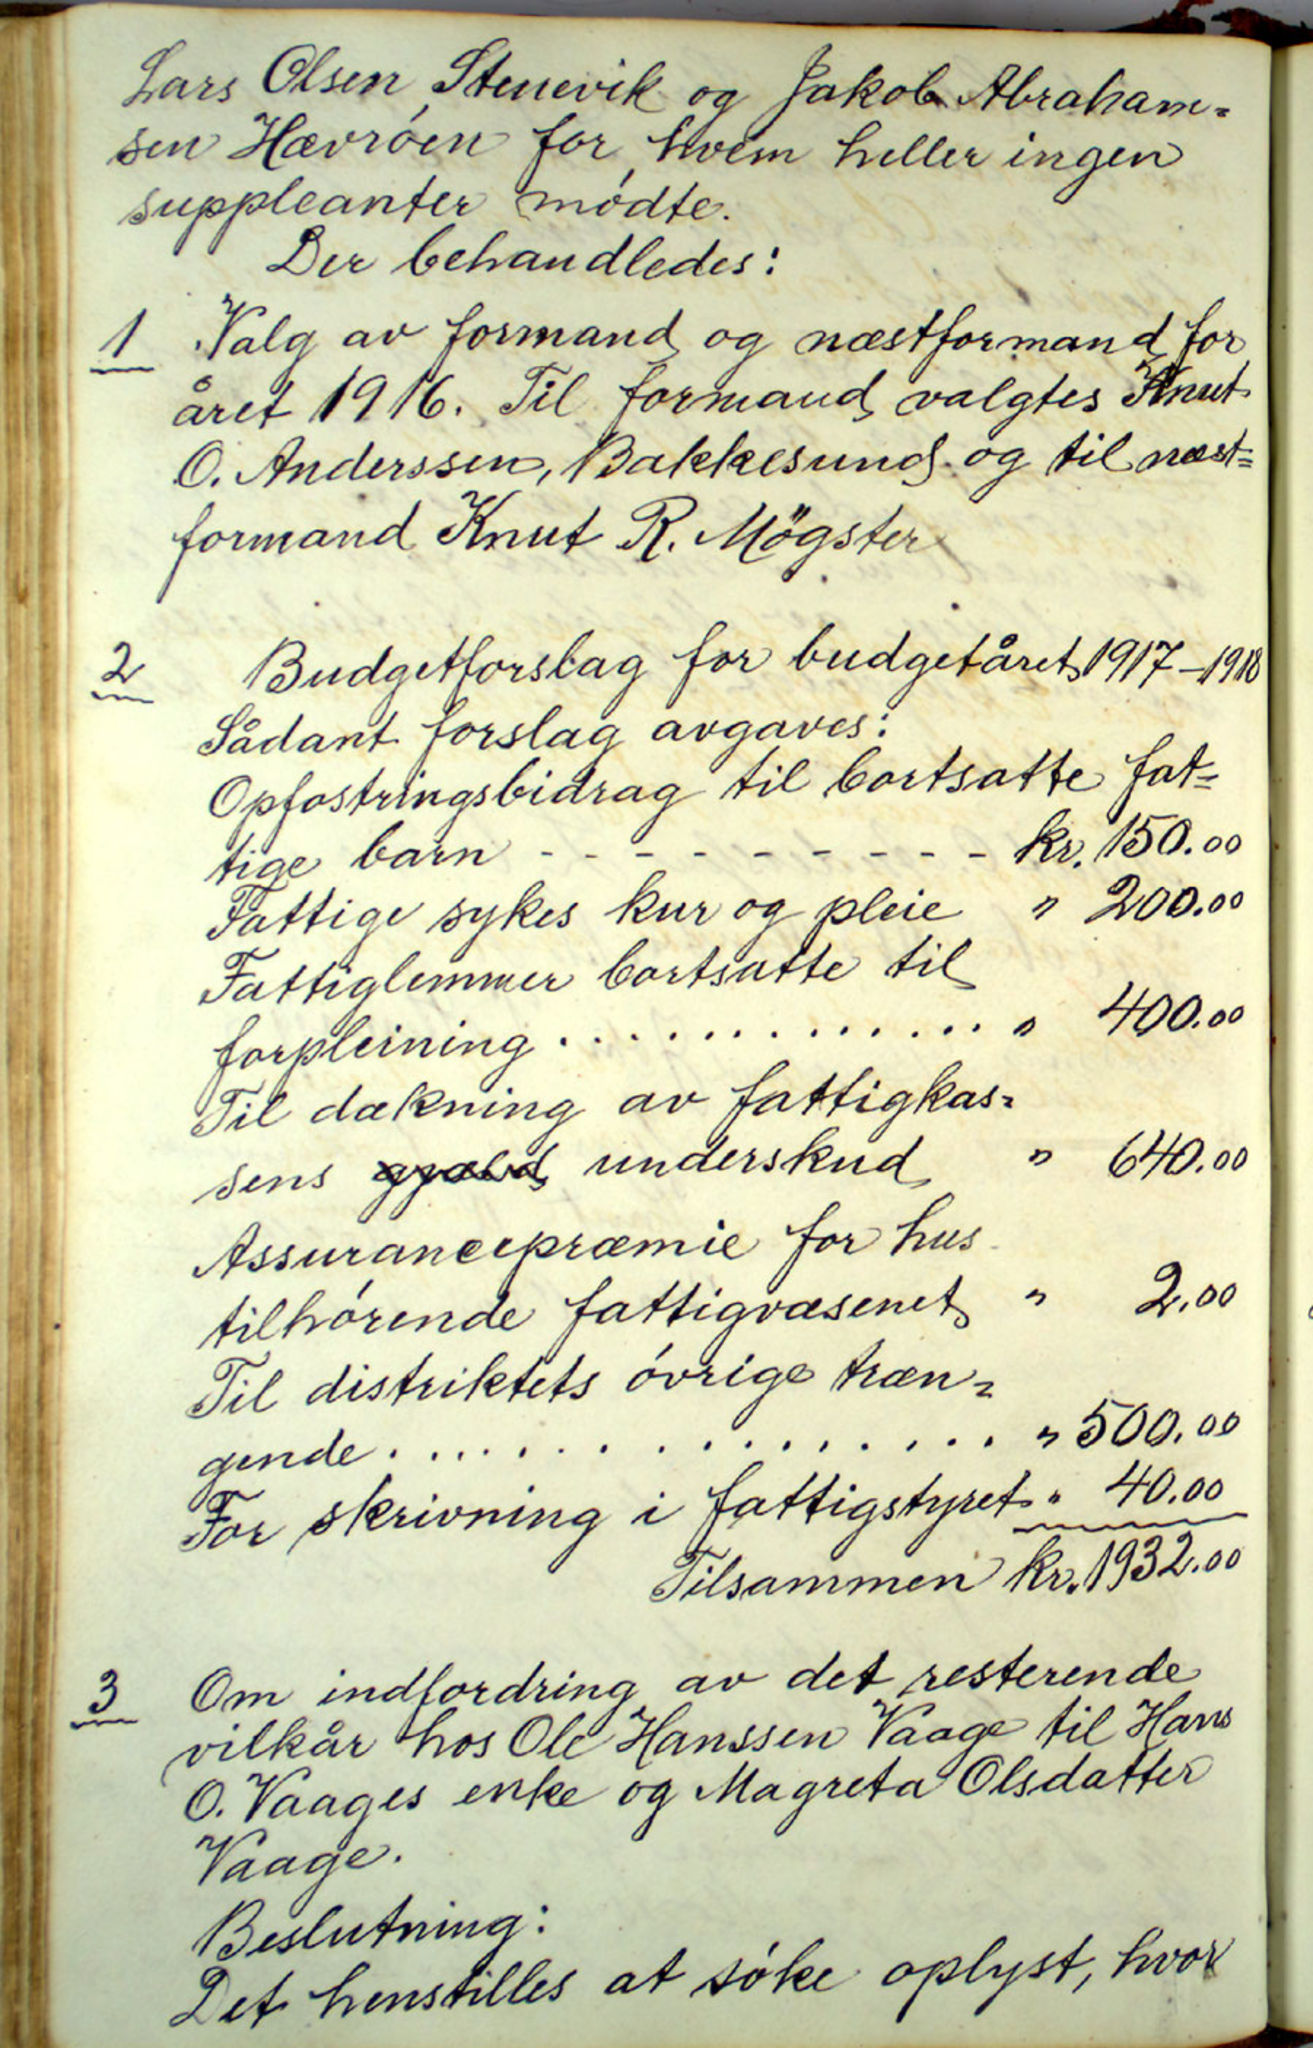 Lars Olsen Stenevik og Jakob Abraham=
sen Hævróen for hvem heller ingen
suppleanter módte.
Der behandledes:
1 Valg av formand og næstformand for
året 1916. Til formand valgtes Knut
O. Anderssen, Bakkesund og til næst=
formand Knut R. Mögster
2 Budgetforslag for budgetåret 1917-1918
Sådant forslag avgaves:
Opfostringsbidrag til bortsatte fat=
tige barn - - - - - - - - - - kr. 150.00
Fattige sykes kur og pleie " 200.00
Fattiglemmer bortsatte til
forpleining . . . . . . . . . . . . . . " 400.00
Til dækning av fattigkas=
sens gjæld underskud " 640.00
Assurancepræmie for hus
tilhórende fattigvæsenet " 2.00
Til distriktets óvrige træn=
gende . . . . . . . . . . . . . . . . . " 500.00
For skrivning i fattigstyret " 40.00
Tilsammen kr. 1932.00
3 Om indfordring av det resterende
vilkår hos Ole Hanssen Vaage til Hans
O. Vaages enke og Magreta Olsdatter
Vaage.
Beslutning:
Det henstilles at sóke oplyst, hvor